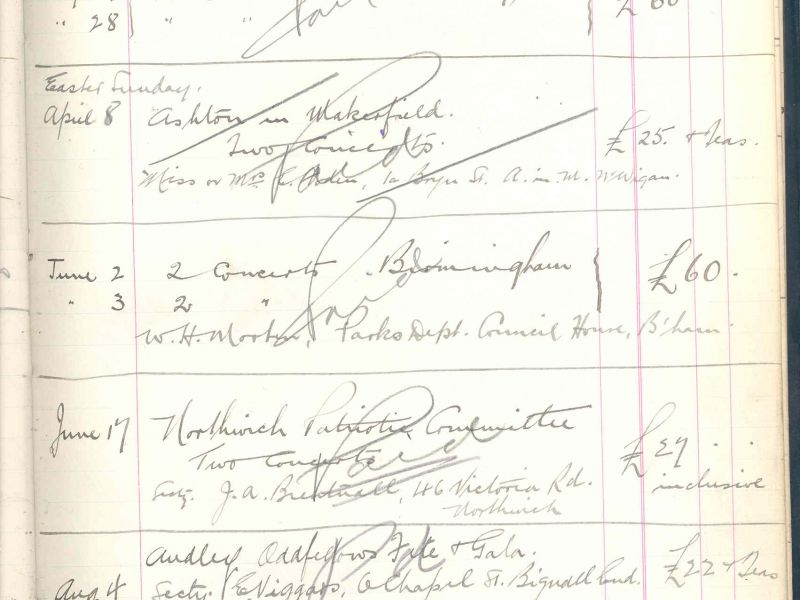 " 28 " " £60
Easter Sunday.
April 8 Ashton in Makerfield. £25. + Teas.
Two Concerts.
Miss or Mrs E. 1a Bryn St. A. in. M. Nr Wigan.
June 2 2 Concerts Birmingham £60.
" 3 2 "
W. H. Morton, Parks Dept. Council House, B'ham.
June 17 Northwich Patriotic Committee £27
Two Concerts inclusive
Secty. J. A. 46 Victoria Rd.
Northwich
Paid
Audley Oddfellows Fete & Gala. £22 + Teas
Aug 4 Secty. E. Viggars, 6 Chapel St. Bignall End.